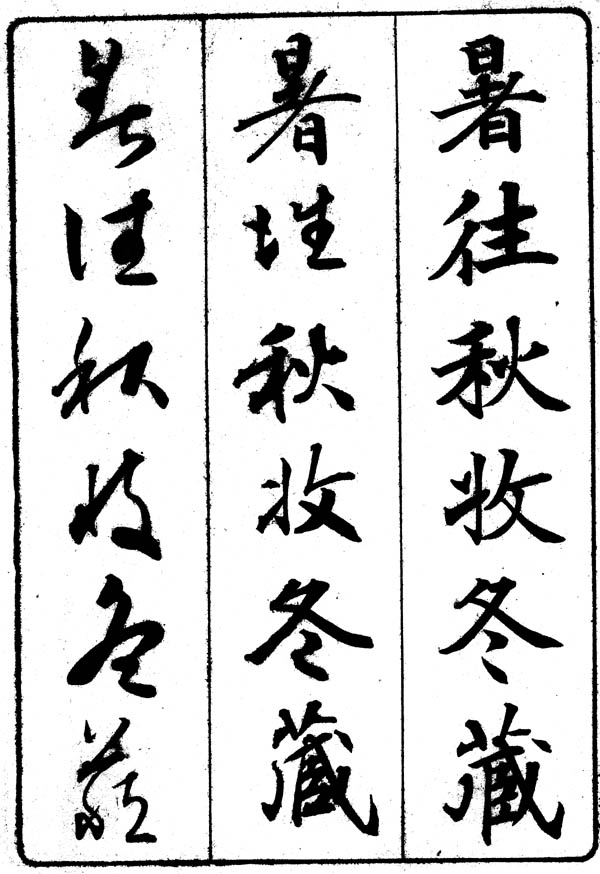 暑往秋收冬藏
暑往秋收冬藏
暑往秋收冬藏